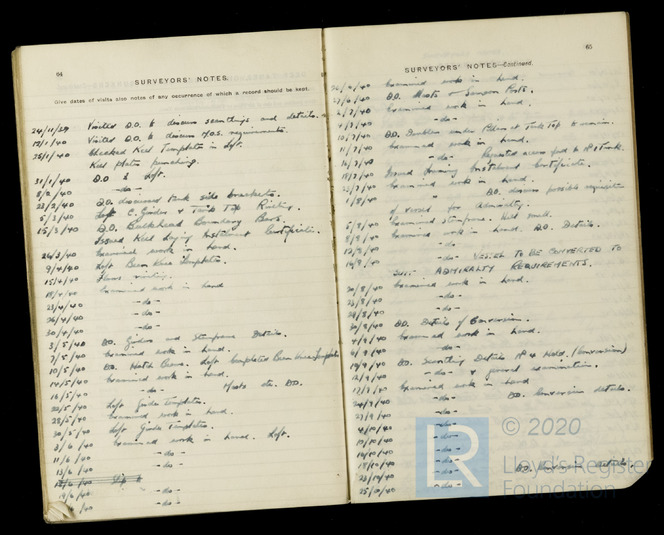 64
SURVEYORS' NOTES.
Give dates of visits also notes of any occurrence of which a record should be kept.
24/11/39 Visited D.O. to discuss scantlings and details.
12/1/40 Visited D.O. to discuss M.O.S. requirements.
25/1/40 Checked Keel Templates in Loft.
Keel plates punching.
31/1/40 D.O. & Loft.
8/2/40 -do-
22/2/40 D.O. discussed tank side brackets.
5/3/40 Loft C. Girder & Tank Top
15/3/40 D.O. Bulkhead Boundary Bars.
Issued Keel Laying Instalment Certificate.
26/3/40 Examined work in hand.
9/4/40 Loft Templates.
15/4/40
18/4/40 Examined work in hand
23/4/40 -do-
26/4/40 -do-
30/4/40 -do-
3/5/40 D.O. Girders and Sternframe Details.
7/5/40 Examined work in hand.
10/5/40 D.O. Hatch Loft completed
14/5/40 Examined work in hand.
16/5/40 -do- Masts etc. D.O.
22/5/40 Loft Girder templates.
28/5/40 Examined work in hand.
30/5/40 Loft Girder Templates.
3/6/40 Examined work in hand. Loft.
11/6/40 -do-
13/6/40 -do-
19/6/40 -do-
/40 -do-
65
SURVEYORS' NOTES—Continued.
/6/40 Examined work in hand.
27/6/40 D.O. Masts & Samson Posts.
2/7/40 Examined work in hand.
4/7/40 -do-
10/7/40 D.O. Doublers under Pillars at Tank Top to remain.
11/7/40 Examined work in hand.
16/7/40 -do- Repeated
19/7/40 Issued Framing Instalment Certificate.
23/7/40 Examined work in hand.
1/8/40 " D.O. discuss possible
of vessel for Admiralty.
5/8/40 Examined Sternframe.
8/8/40 Examined work in hand. D.O. Details.
13/8/40 -do-
16/8/40 -do- VESSEL TO BE CONVERTED TO
ADMIRALTY REQUIREMENTS.
20/8/40 Examined work in hand.
23/8/40 -do-
28/8/40 -do-
30/8/40 D.O. Details of Conversion.
4/9/40 Examined work in hand.
6/9/40 -do-
10/9/40 D.O. Scantling Details Hold. (Conversion)
12/9/40 -do- & general examination.
17/9/40 Examined work in hand
24/9/40 -do- D.O. Conversion details.
27/9/40 -do-
4/10/40 -do-
10/10/40 -do-
15/10/40 -do-
18/10/40 -do-
23/10/40 -do- D.O. Conversion
25/10/40 -do-
R © 2020
Lloyd's Register
Foundation